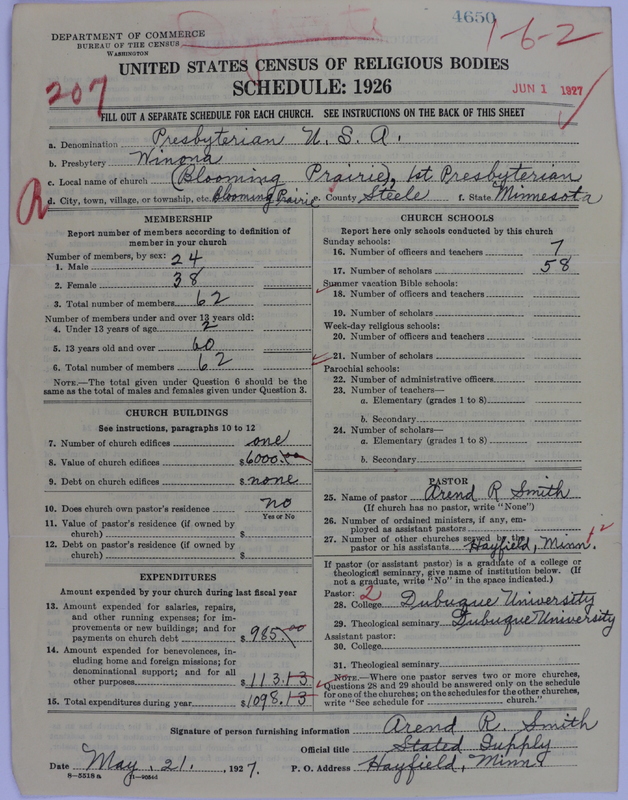 4650
DEPARTMENT OF COMMERCE
BUREAU OF THE CENSUS
WASHINGTON
1-6-2
UNITED STATES CENSUS OF RELIGIOUS BODIES
SCHEDULE: 1926
JUN 1 1927
207
FILL OUT A SEPARATE SCHEDULE FOR EACH CHURCH. SEE INSTRUCTIONS ON THE BACK OF THIS SHEET
a. Denomination Presbyterian U.S.A.
b. Presbytery Winona
c. Local name of church (Blooming Prairie), 1st. Presbyterian
d. City, town, village, or township, etc. Blooming Prairie e. County Steele f. State Minnesota
MEMBERSHIP
Report number of members according to definition of
member in your church
Number of members, by sex:
1. Male 24
2. Female 38
3. Total number of members 62
Number of members under and over 13 years old:
4. Under 13 years of age 2
5. 13 years old and over 60
6. Total number of members 62
NOTE.—The total given under Question 6 should be the
same as the total of males and females given under Question 3.
CHURCH BUILDINGS
See instructions, paragraphs 10 to 12
7. Number of church edifices one
8. Value of church edifices $6000.00
9. Debt on church edifices $ none
10. Does church own pastor's residence no
Yes or No
11. Value of pastor's residence (if owned by
church) $
12. Debt on pastor's residence (if owned by
church) $
EXPENDITURES
Amount expended by your church during last fiscal year
13. Amount expended for salaries, repairs,
and other running expenses; for im-
provements or new buildings; and for
payments on church debt $ 985.00
14. Amount expended for benevolences, in-
cluding home and foreign missions; for
denominational support; and for all
other purposes $ 113.13
15. Total expenditures during year $1098.13
CHURCH SCHOOLS
Report here only schools conducted by this church
Sunday schools:
16. Number of officers and teachers 7
17. Number of scholars 58
Summer vacation Bible schools:
18. Number of officers and teachers
19. Number of scholars
Week-day religious schools:
20. Number of officers and teachers
21. Number of scholars
Parochial schools:
22. Number of administrative officers
23. Number of teachers—
a. Elementary (grades 1 to 8)
b. Secondary
24. Number of scholars—
a. Elementary (grades 1 to 8)
b. Secondary
PASTOR
25. Name of pastor Arend R Smith
(If church has no pastor, write "None")
26. Number of ordained ministers, if any, em-
ployed as assistant pastors
27. Number of other churches served by the
pastor or his assistants Hayfield, Minn. 2
If pastor (or assistant pastor) is a graduate of a college or
theological seminary, give name of institution below. (If
not a graduate, write "No" in the space indicated.)
Pastor: 2
28. College Dubuque University
29. Theological seminary Dubuque University
Assistant pastor:
30. College
31. Theological seminary
NOTE.—Where one pastor serves two or more churches,
Questions 28 and 29 should be answered only on the schedule
for one of the churches; on the schedules for the other churches,
write "See schedule for church."
Signature of person furnishing information Arend R. Smith
Official title Stated Supply
Date May. 21, 1927. P. O. Address Hayfield, Minn.
8-5518 a